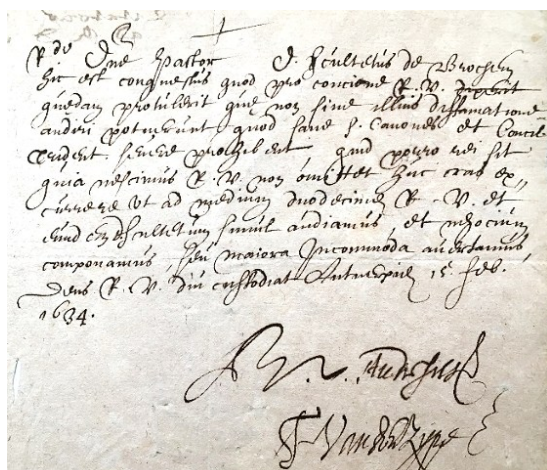 Rde Dne Pastor D. Scultetus de Brochem
hic est conquestus quod pro concione R.V.
quedam protulerit que non sine illius diffamatione
audiri potuerunt, quod sane S. Canones et Concil.
Trident. severe prohibent quid porro rei sit
quia nescimus R.V. non omittet huc cras ex,,
currere ut ad medium duodecime R.V. et
eundem Scultetum simul audiamus, et negocium
componamus, seu maiora incommoda avertamus,
Deus R.V. diu custodiat Antverpie 15 Feb.
1634.